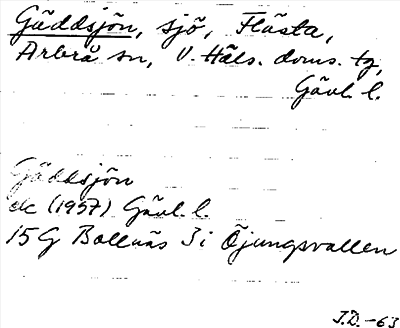 Gäddsjön, sjö, Flästa,
Arbrå sn, V. Häls. doms. tg,
Gävl. l.
Gäddsjön
ek (1957) Gävl. l.
15G Bollnäs 3i Öjungsvallen
J.D.-63